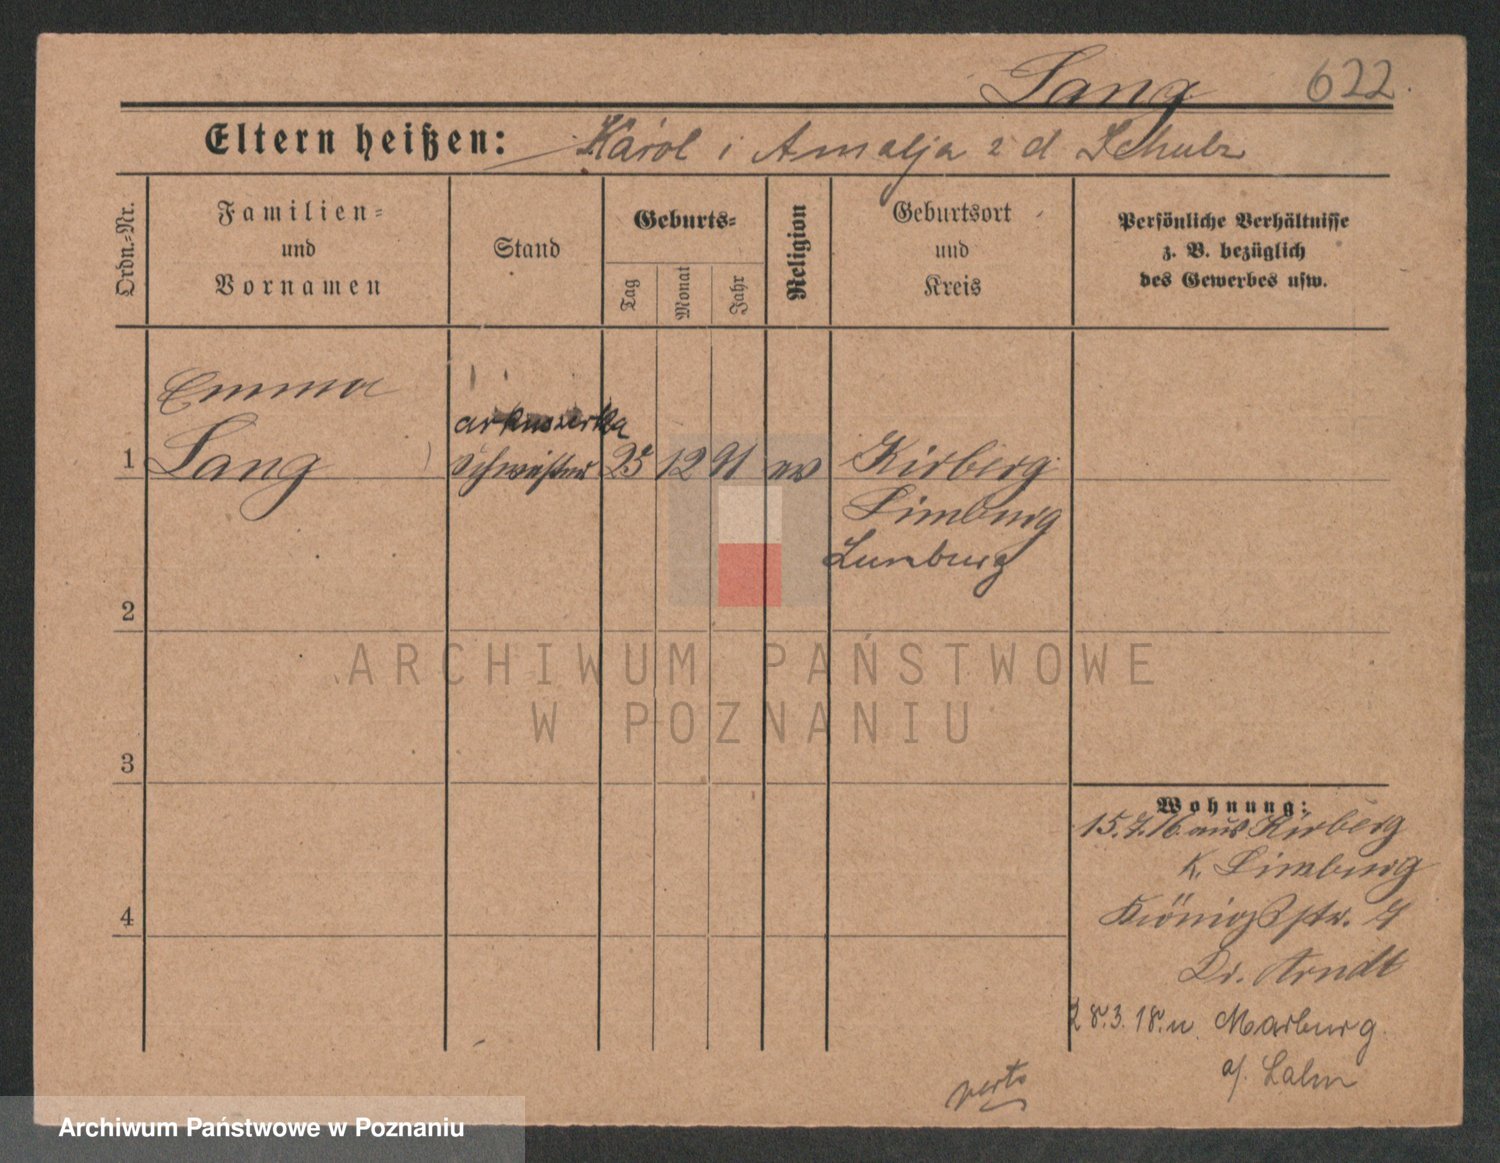 Lang 622
Eltern heißen: Karol i Amalja z d Schulz
Ordn.=Nr.
Familien=
und
Vornamen
Stand
Geburts=
Tag
Monat
Jahr
Religion
Geburtsort
und
Kreis
Persönliche Verhältnisse
z. B. bezüglich
des Gewerbes usw.
Emma
akuszerka
1 Lang Schwester 25 12 91 ev Kirberg
Limburg
Limburg
2
ARCHIWUM PAŃSTWOWE
W POZNANIU
3
Wohnung:
15.7.16 aus Kirberg
K. Limburg
4 Königsstr. 7
Dr. Arndt
28.3.18. n Marburg
a/. Lahn
verte
Archiwum Państwowe w Poznaniu